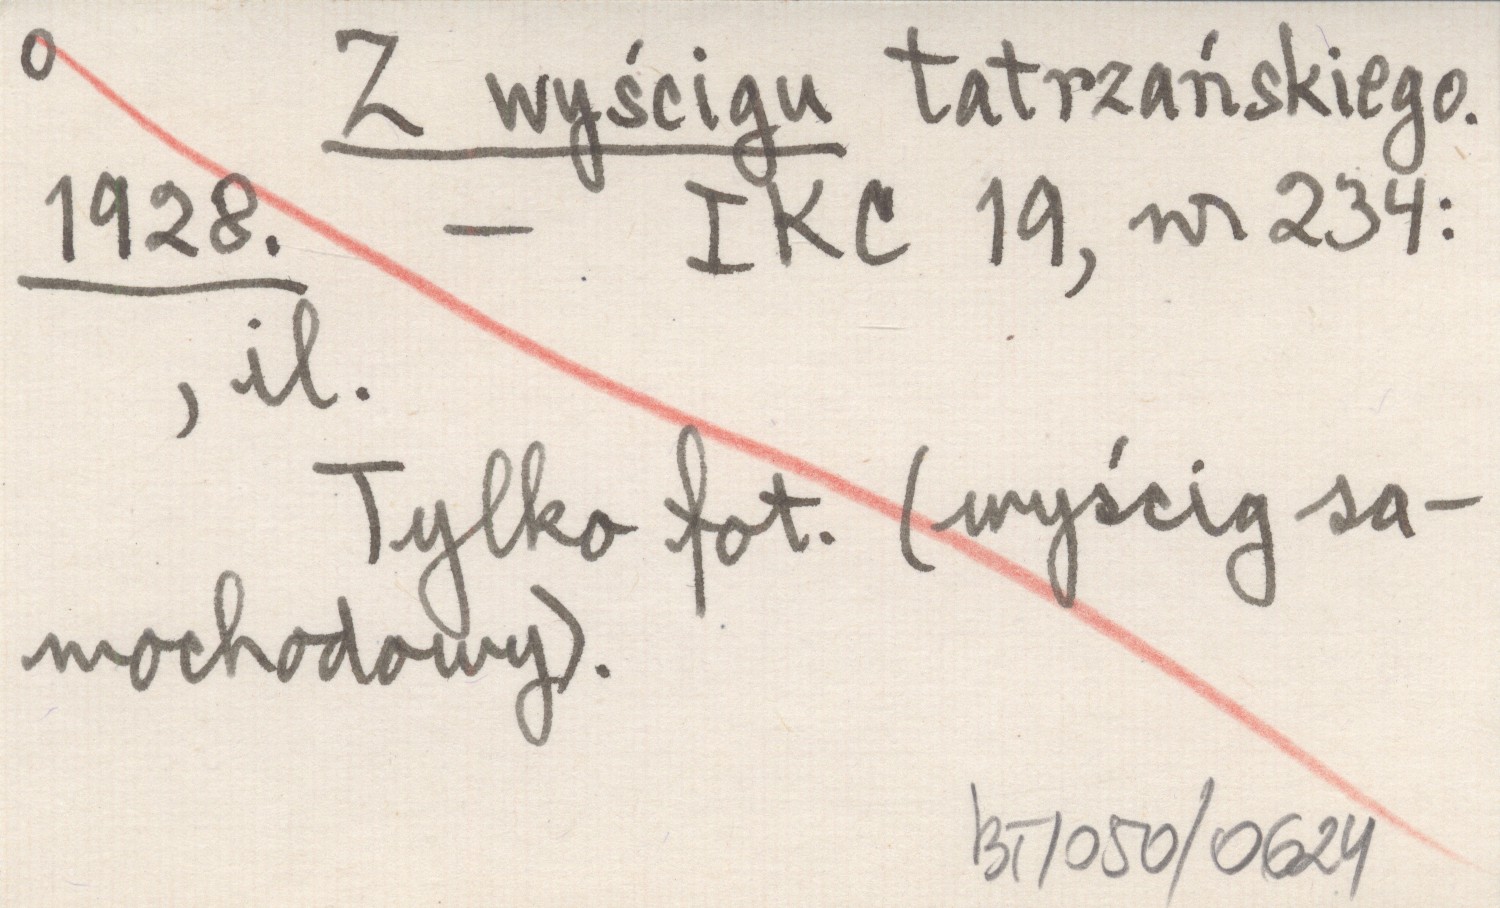 o Z wyścigu tatrzańskiego.
1928. — IKC 19, nr 234:
, il.
Tylko fot. (wyścig sa-
mochodowy).
BT/050/0624